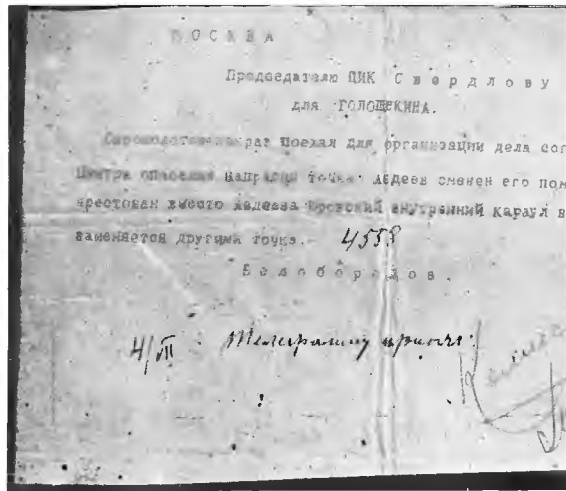 МОСКВА
Председателю ЦИК Свердлову
для ГОЛОЩЕКИНА.
Сыромолотов как раз поехал для организации дела сог
Центра опасения напрасны точка Авдеев сменен его пом
арестован вместо Авдеева Юровский внутренний караул в
заменяется другими точка.- 4558
Белобородов.
4/VII Телеграмму принял: